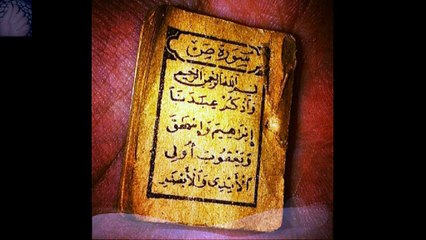 سورة ص
بسم الله الرحمن الرحيم
وَاذْكُرْ عِبَدَنَا
إِبْرَهِيمَ وَإِسْحَقَ
وَيَعْقُوبَ أُولِي
الْأَيْدِي وَالْأَبْصَرِ